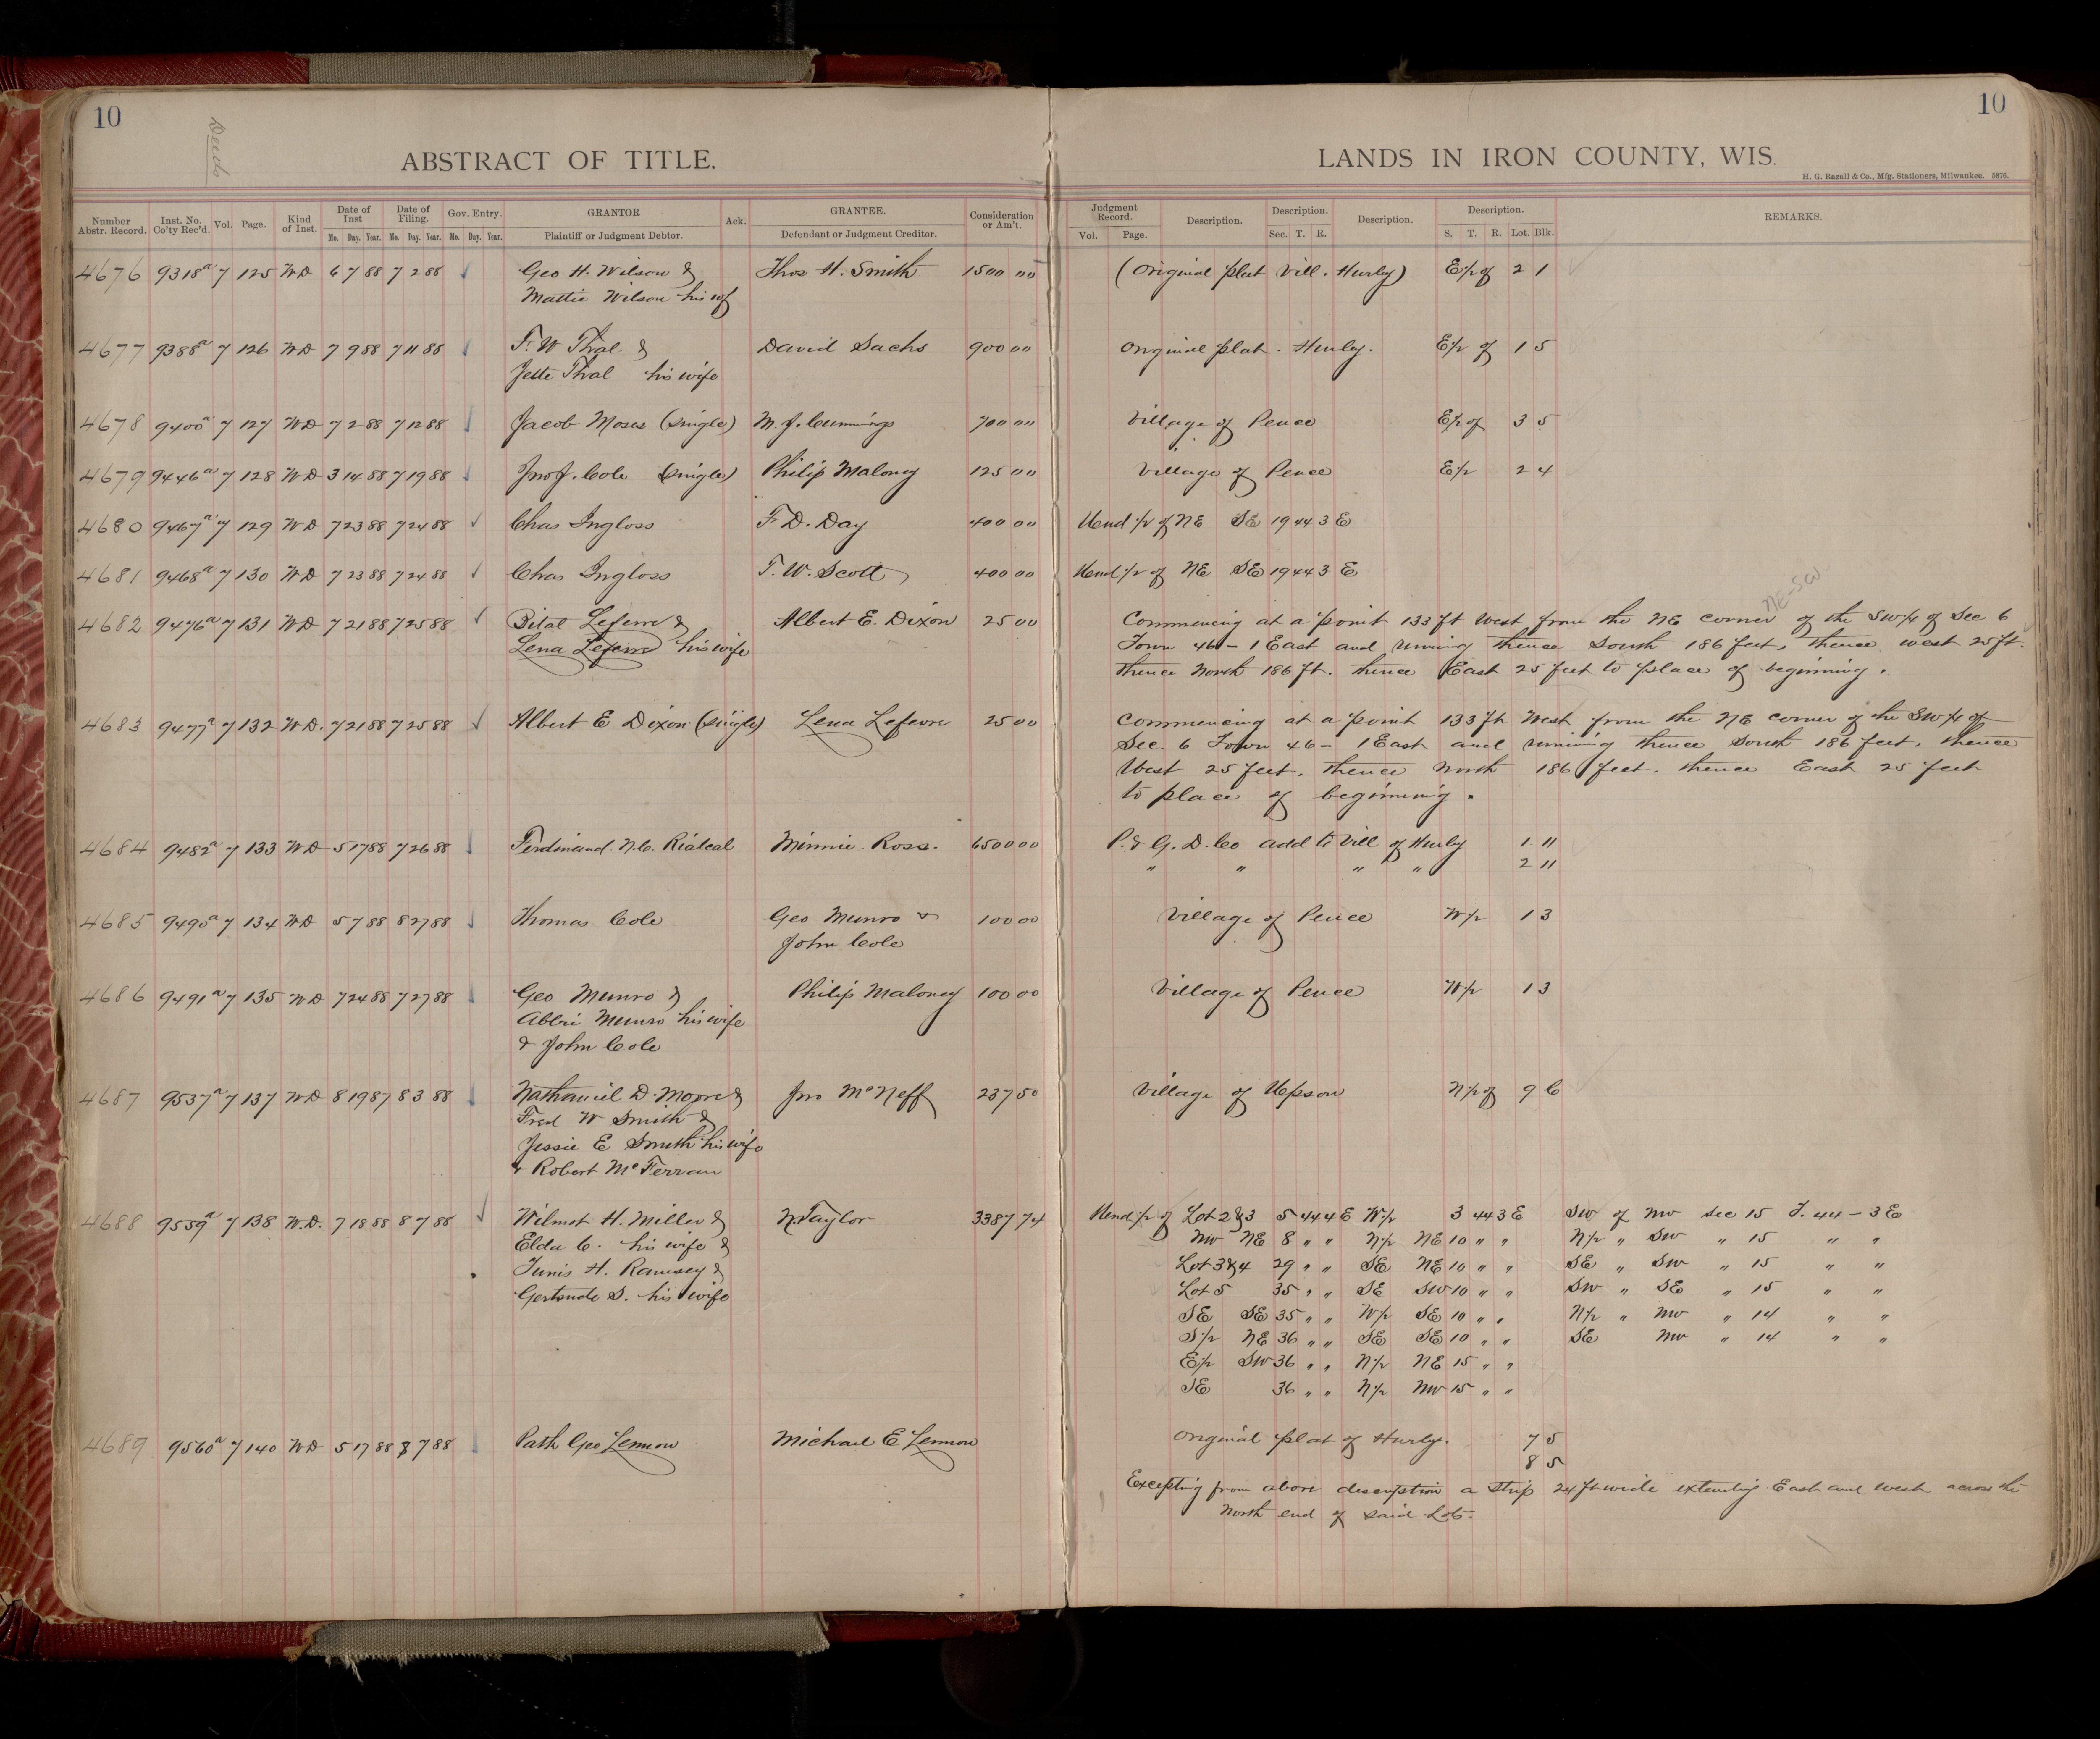 10
Deeds
ABSTRACT OF TITLE.
LANDS IN IRON COUNTY, WIS.
10
H. G. Razall & Co., Mfg. Stationers, Milwaukee. 5876.
Number Abstr. Record. Inst. No. Co'ty Rec'd. Vol. Page. Kind of Inst. Date of Inst Mo. Day. Year. Date of Filing. Mo. Day. Year. Gov. Entry. Mo. Day. Year. GRANTOR Plaintiff or Judgment Debtor. Ack. GRANTEE. Defendant or Judgment Creditor. Consideration or Am't.
Judgment Record. Vol. Page. Description. Description. Sec. T. R. Description. Description. S. T. R. Lot. Blk. REMARKS.
4676 9318a 7 125 WD 6 7 88 7 2 88 ✓ Geo H. Wilson & Thos H. Smith 1500 00 (Original plat Vill. Hurley) E½ of 2 1
Mattie Wilson his wf
4677 9388a 7 126 WD 7 9 88 7 11 88 ✓ F. W Thal & David Sachs 900 00 Original plat. Hurley. E½ of 1 5
Jette Thal his wife
4678 9400a 7 127 WD 7 2 88 7 12 88 ✓ Jacob Moses (single) M. J. Cummings 700 00 Village of Pence E½ of 3 5
4679 9446a 7 128 WD 3 14 88 7 19 88 ✓ Jno J. Cole (single) Philip Maloney 125 00 Village of Pence E½ 2 4
4680 9467a 7 129 WD 7 23 88 7 24 88 ✓ Chas Ingloss F. D. Day 400 00 Und ½ of NE SE 19 44 3 E
4681 9468a 7 130 WD 7 23 88 7 24 88 ✓ Chas Ingloss T. W. Scott 400 00 Und ½ of NE SE 19 44 3 E
NE-SW
4682 9476a 7 131 WD 7 21 88 7 25 88 ✓ Lefevre & Albert E. Dixon 25 00 Commencing at a point 133 ft West from the NE corner of the SW¼ of Sec 6
Lena Lefevre his wife Town 46 - 1 East and running thence South 186 feet, thence west 25 ft.
thence North 186 ft. thence East 25 feet to place of beginning.
4683 9477a 7 132 W.D. 7 21 88 7 25 88 ✓ Albert E Dixon (single) Lena Lefevre 25 00 Commencing at a point 133 ft West from the NE corner of the SW¼ of
Sec. 6 Town 46 - 1 East and running thence South 186 feet, thence
West 25 feet. thence North 186 feet. thence East 25 feet
to place of beginning.
4684 9482a 7 133 WD 5 17 88 7 26 88 ✓ Ferdinand. N. C. Minnie Ross. 6500 00 P. & G. D. Co add to Vill of Hurley 1 11
" " " " 2 11
4685 9490a 7 134 WD 5 7 88 8 27 88 ✓ Thomas Cole Geo Munro & 100 00 Village of Pence W½ 1 3
John Cole
4686 9491a 7 135 WD 7 24 88 7 27 88 ✓ Geo Munro & Philip Maloney 100 00 Village of Pence W½ 1 3
Abbie Munro his wife
& John Cole
4687 9537a 7 137 WD 8 19 87 8 3 88 ✓ Nathaniel D. Moore & Jno McNeff 237 50 Village of Upson N½ of 9 6
Fred W Smith &
Jessie E Smith his wife
& Robert McFerran
4688 9559a 7 138 W.D. 7 18 88 8 7 88 ✓ Wilmot H. Miller & N. Taylor 3387 74 Und ½ of Lot 2 & 3 5 44 4 E W½ 3 44 3 E SW of NW Sec 15 T. 44 - 3 E
Elda C. his wife & NW NE 8 " " N½ NE 10 " " N½ " SW " 15 " "
Tunis H. Ramsey & Lot 3 & 4 29 " " SE NE 10 " " SE " SW " 15 " "
Gertrude S. his wife Lot 5 35 " " SE SW 10 " " SW " SE " 15 " "
SE SE 35 " " W½ SE 10 " " N½ " NW " 14 " "
S½ NE 36 " " SE SE 10 " " SE NW " 14 " "
E½ SW 36 " " N½ NE 15 " "
SE 36 " " N½ NW 15 " "
4689 9560a 7 140 WD 5 17 88 8 7 88 ✓ Path Geo Lennon Michael E Lennon Original plat of Hurley. 7 5
8 5
Excepting from above description a strip 24 ft wide extending East and West across the
North end of said Lots.